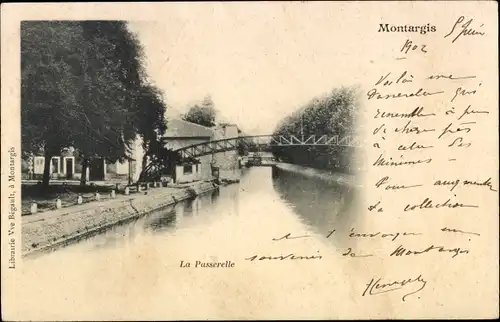 Montargis
5 Juin
1902
Voilà une
Passerelle qui
ressemble à peu
de chose près
à celle des
Minimes
Pour augmenter
ta collection
je t'envoie un
souvenir de Montargis
La Passerelle
Librairie Vve Bigault, à Montargis